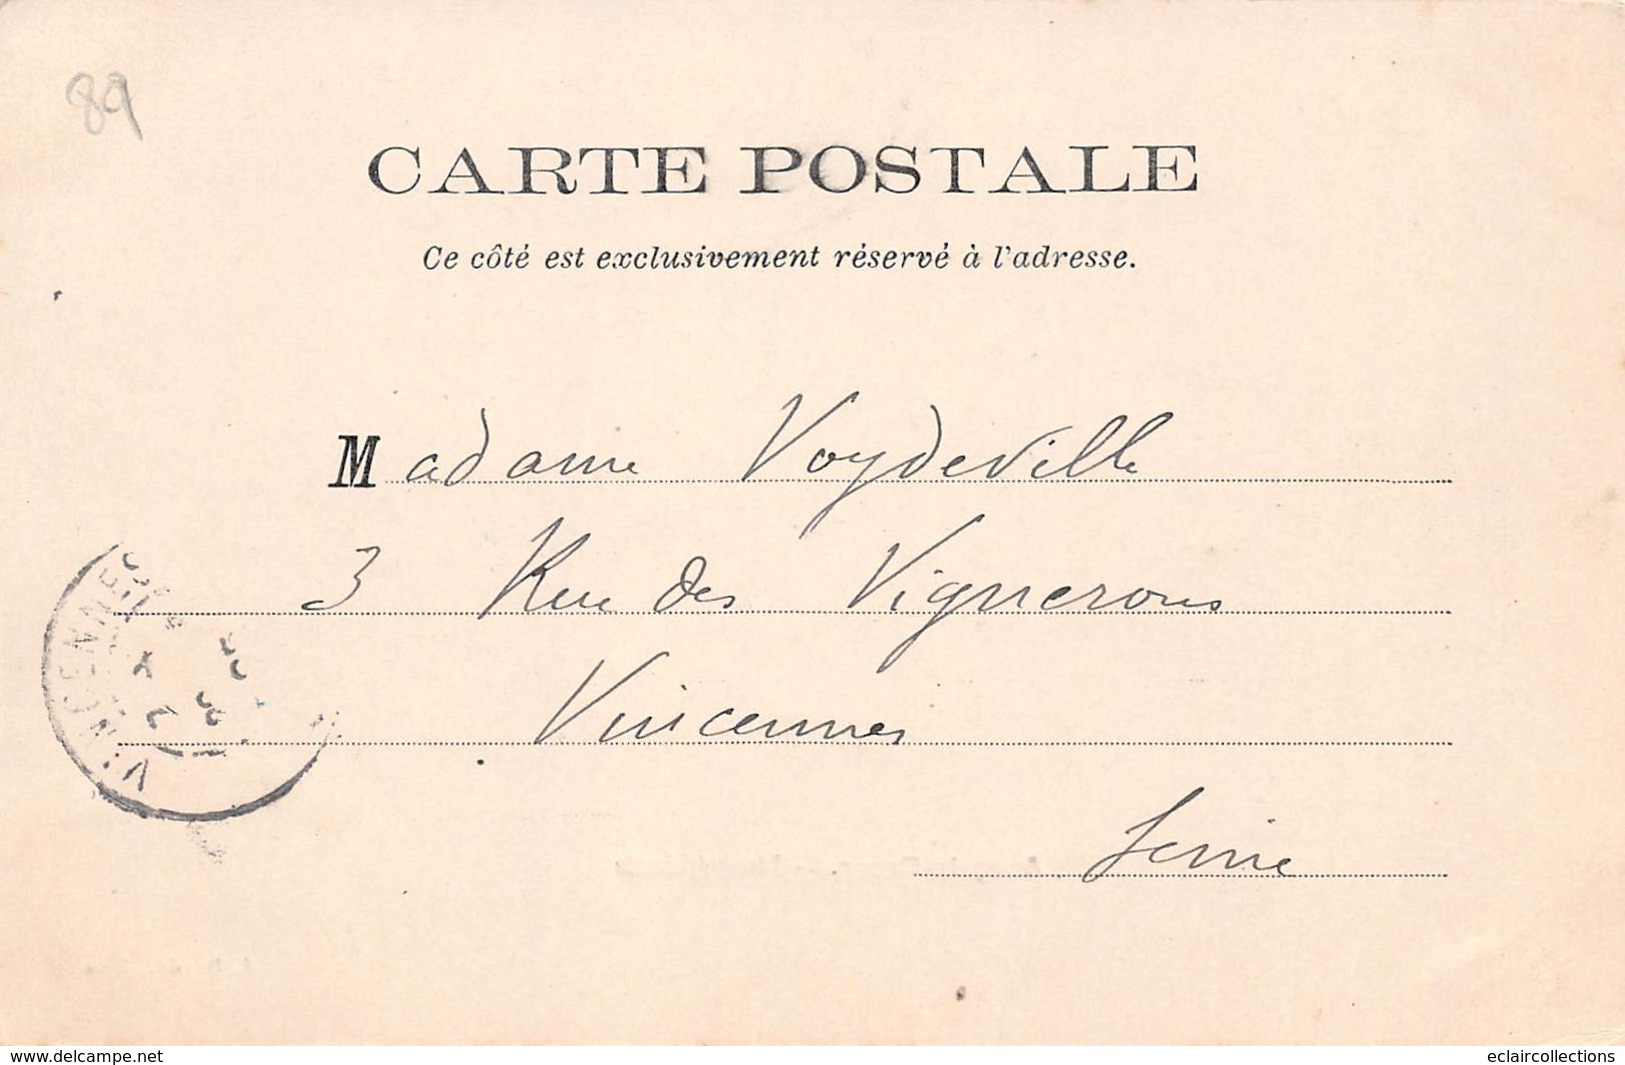 89
CARTE POSTALE
Ce côté est exclusivement réservé à l'adresse.
Madame Voydeville
3 Rue des Vignerons
Vincennes
Seine
VINCENNES
www.delcampe.net
eclaircollections